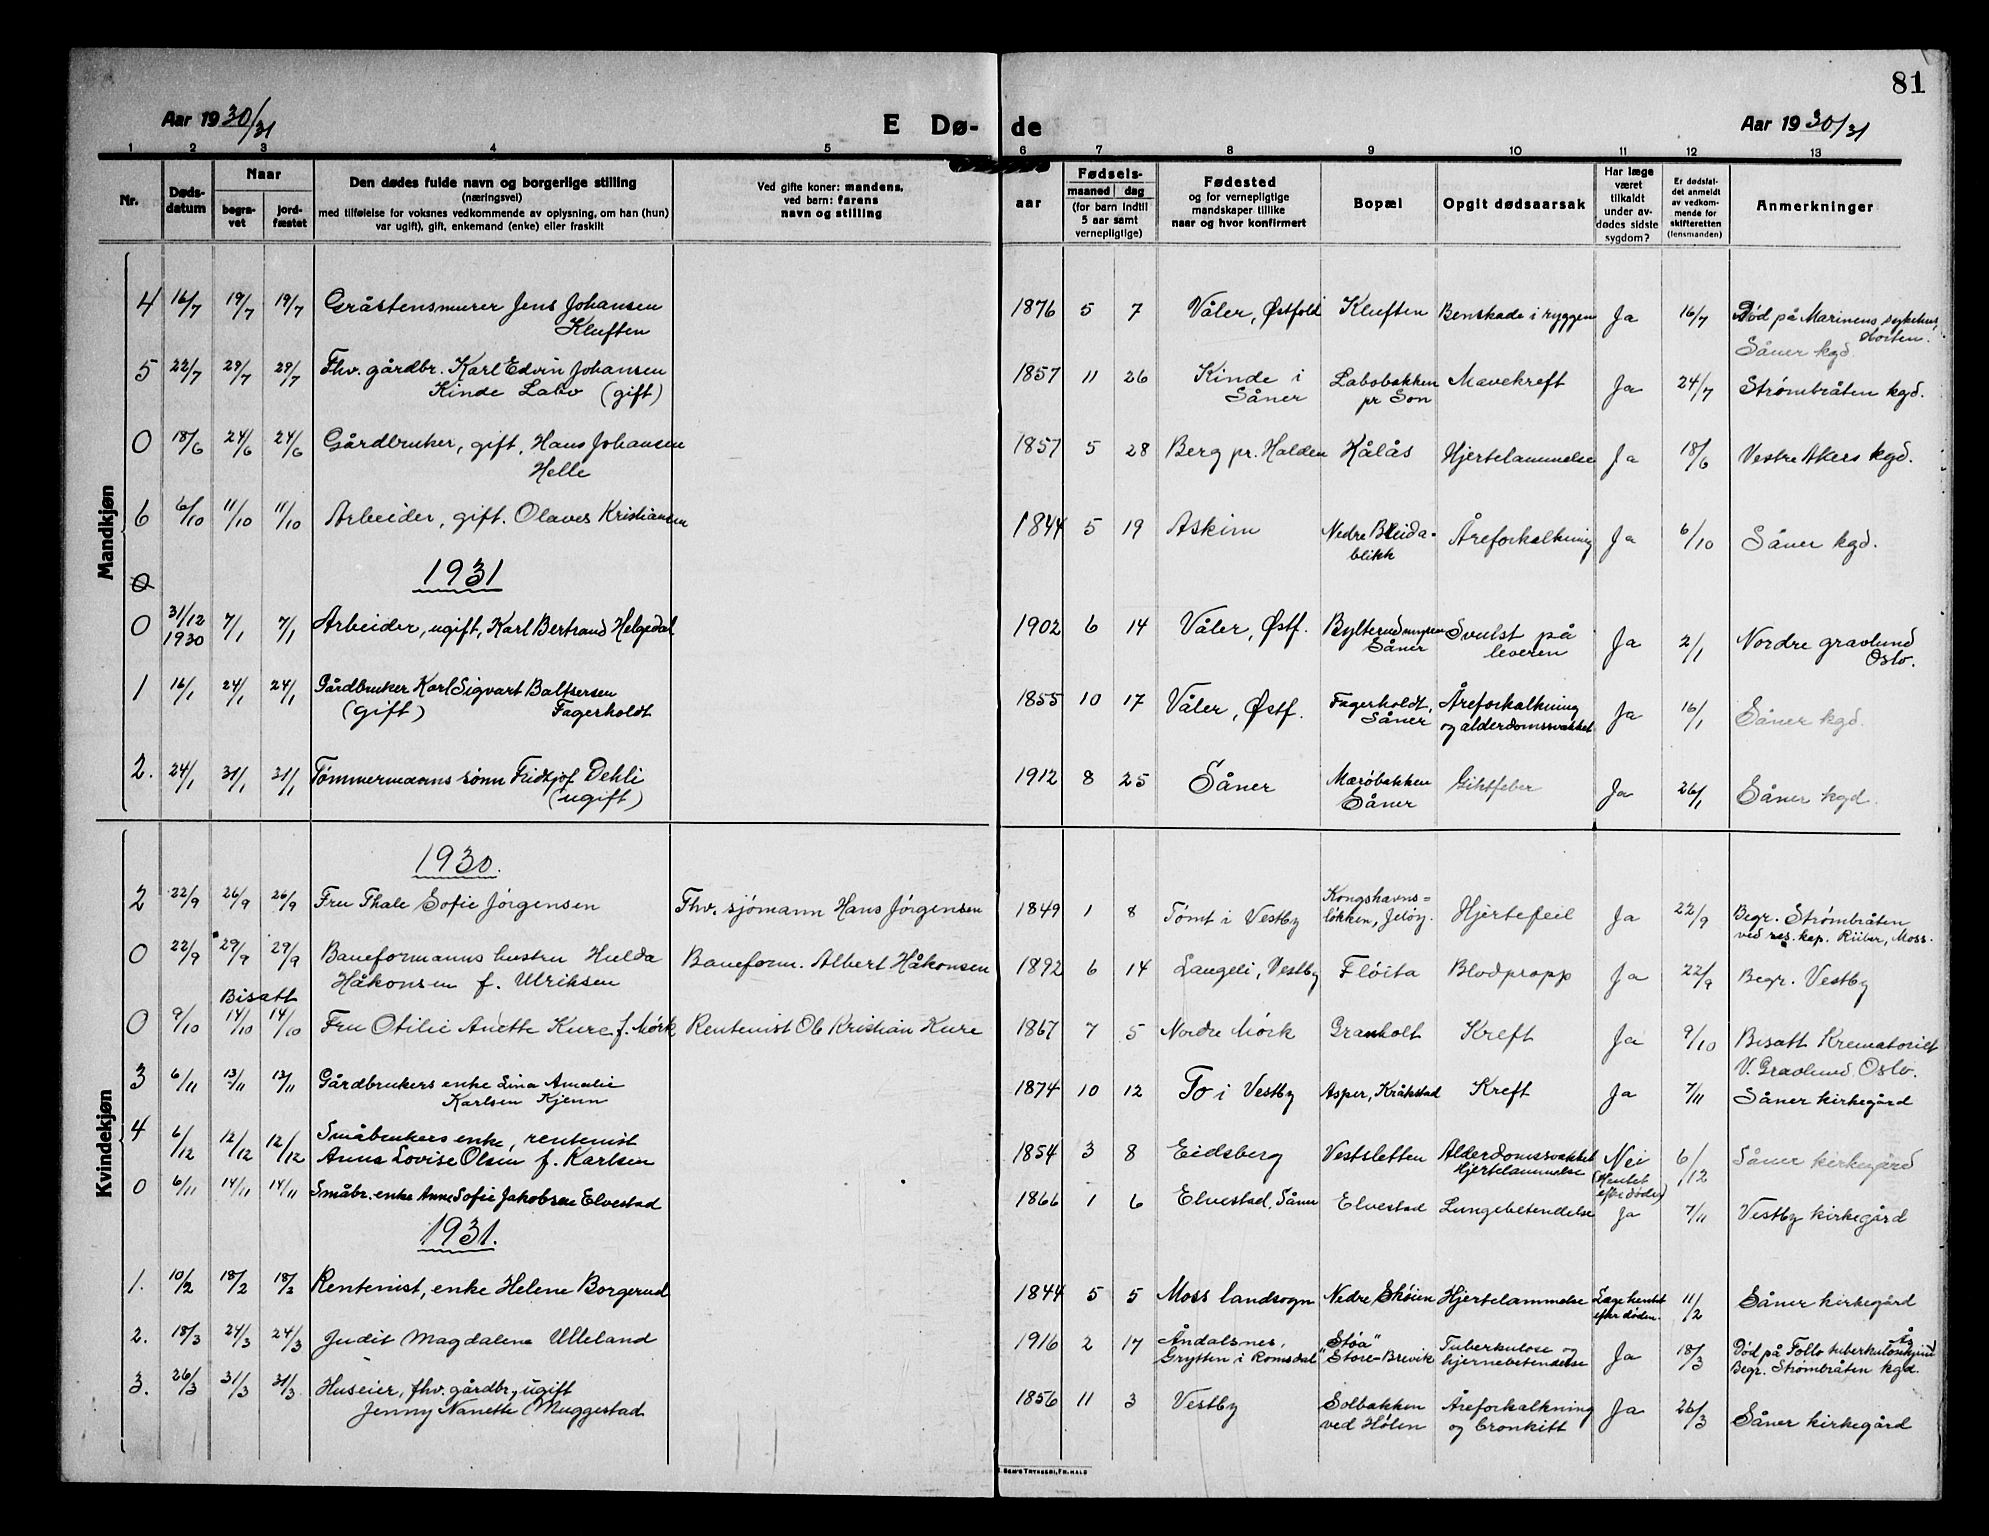 81
Aar 1930/31
E Dø-
de
Aar 1930/31
1 2 3 4 5 6 7 8 9 10 11 12 13
Nr.
Døds-datum
Naar
begra-vet
jord-fæstet
Den dødes fulde navn og borgerlige stilling
(næringsvei)
med tilføielse for voksnes vedkommende av oplysning, om han (hun)
var ugift), gift, enkemand (enke) eller fraskilt
Ved gifte koner: mandens,
ved barn: farens
navn og stilling
Fødsels-
aar
maaned dag
(for barn indtil
5 aar samt
vernepligtige)
Fødested
og for vernepligtige
mandskaper tillike
naar og hvor konfirmert
Bopæl
Opgit dødsaarsak
Har læge
været
tilkaldt
under av-
dødes sidste
sygdom?
Er dødsfal-
det anmeldt
av vedkom-
mende for
skifteretten
(lensmanden)
Anmerkninger
Mandkjøn
4 16/7 19/7 19/7 Gråstensmurer Jens Johansen 1876 5 7 Våler, Østfold Kluften Benskade i ryggen Ja 16/7 Død på Marinens sykehus,
Kluften Horten.
Såner kgd.
5 22/7 29/7 29/7 Fhv. gårdbr. Karl Edvin Johansen 1857 11 26 Kinde i Labobakken Mavekreft Ja 24/7 Strømbråten kgd.
Kinde Labo (gift) Såner pr Son
0 18/6 24/6 24/6 Gårdbruker, gift, Hans Johansen 1857 5 28 Berg pr. Halden Kålås Hjertelammelse Ja 18/6 Vestre Akers kgd.
Helle
6 6/10 11/10 11/10 Arbeider, gift. Olaves Kristiansen 1844 5 19 Askim Nedre Breida- Åreforkalkning Ja 6/10 Såner kgd.
blikk
0 1931
0 31/12 7/1 7/1 Arbeider, ugift, Karl Bertrand Helgedal 1902 6 14 Våler, Østf. Bylterudmyren Svulst på Ja 2/1 Nordre gravlund
1930 Såner leveren Oslo.
1 16/1 24/1 24/1 Gårdbruker Karl Sigvart Baltsersen 1855 10 17 Våler, Østf. Fagerholdt, Åreforkalkning Ja 16/1 Såner kgd.
(gift) Fagerholdt Såner og alderdomssvakhet
2. 24/1 31/1 31/1 Tømmermanns sønn Fridtjof Dehli 1912 8 25 Såner Marøbakken Giktfeber Ja 26/1 Såner kgd.
(ugift) Såner
Kvindekjøn
1930.
2 22/9 26/9 26/9 Fru Thale Sofie Jørgensen Fhv. sjømann Hans Jørgensen 1849 1 8 Tømt i Vestby Kongshavns- Hjertefeil Ja 22/9 Begr. Strømbråten
løkken, Jeløy. ved res. kap. Riiber, Moss.
0 22/9 29/9 29/9 Baneformanns hustru Hulda Baneform. Albert Håkonsen 1892 6 14 Langeli, Vestby Fløita Blodpropp Ja 22/9 Begr. Vestby
Håkonsen f. Ulriksen
Bisatt
0 9/10 14/10 14/10 Fru Otilie Anette Kure f. Mørk Rentenist Ole Kristian Kure 1867 7 5 Nordre Mørk Granholt Kreft Ja 9/10 Bisatt Krematoriet
V. Gravlund, Oslo.
3 6/11 13/11 13/11 Gårdbrukers enke Lina Amalie 1874 10 12 To i Vestby Asper, Kråkstad Kreft Ja 7/11 Såner kirkegård
Karlsen Kjenn
4 6/12 12/12 12/12 Småbrukers enke, rentenist 1854 3 8 Eidsberg Vestsletten Alderdomssvakhet Nei 6/12 Såner kirkegård
Anna Lovise Olsen f. Karlsen Hjertelammelse (Hentet
efter døden)
0 6/11 14/11 14/11 Småbr. enke Anne Sofie Jakobsen Elvestad 1866 1 6 Elvestad, Såner Elvestad Lungebetendelse Ja 7/11 Vestby kirkegård
1931.
1. 10/2 18/2 18/2 Rentenist, enke Helene Borgerud 1844 5 5 Moss landsogn Nedre Skøien Hjertelammelse Læge hentet 11/2 Såner kirkegård
efter døden.
2. 18/3 24/3 24/3 Judit Magdalene Ulleland 1916 2 17 Åndalsnes, "Støa" Tuberkulose og Ja 18/3 Død på Follo tuberkulosehjem Ås
Grytten i Romsdal Store-Brevik hjernebetendelse Begr. Strømbråten kgd.
3. 26/3 31/3 31/3 Huseier, fhv. gårdbr., ugift 1856 11 3 Vestby Solbakken Åreforkalkning Ja 26/3 Såner kirkegård
Jenny Nanette Muggestad ved Hølen og bronkitt